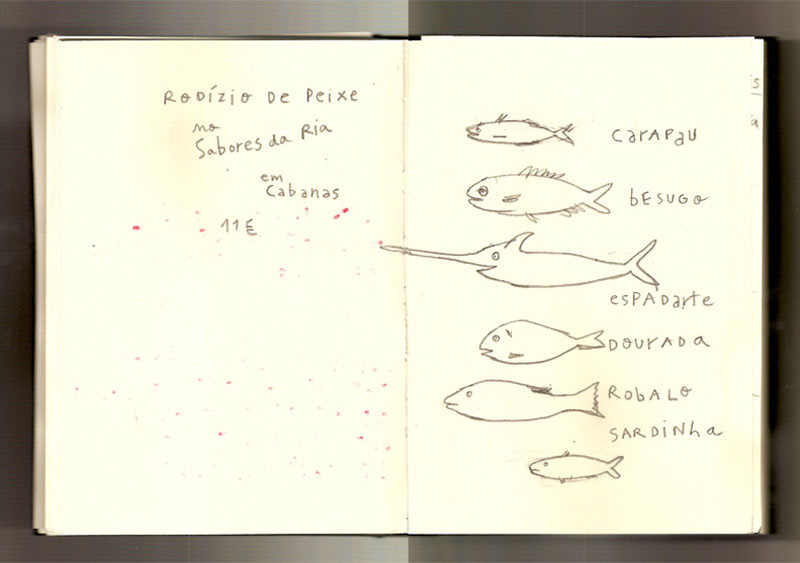 RODÍZIO DE PEIXE
no
Sabores da Ria
em
Cabanas
11€
CARAPAU
bESUGO
esPADarte
DOURADA
RObALO
SARDINha